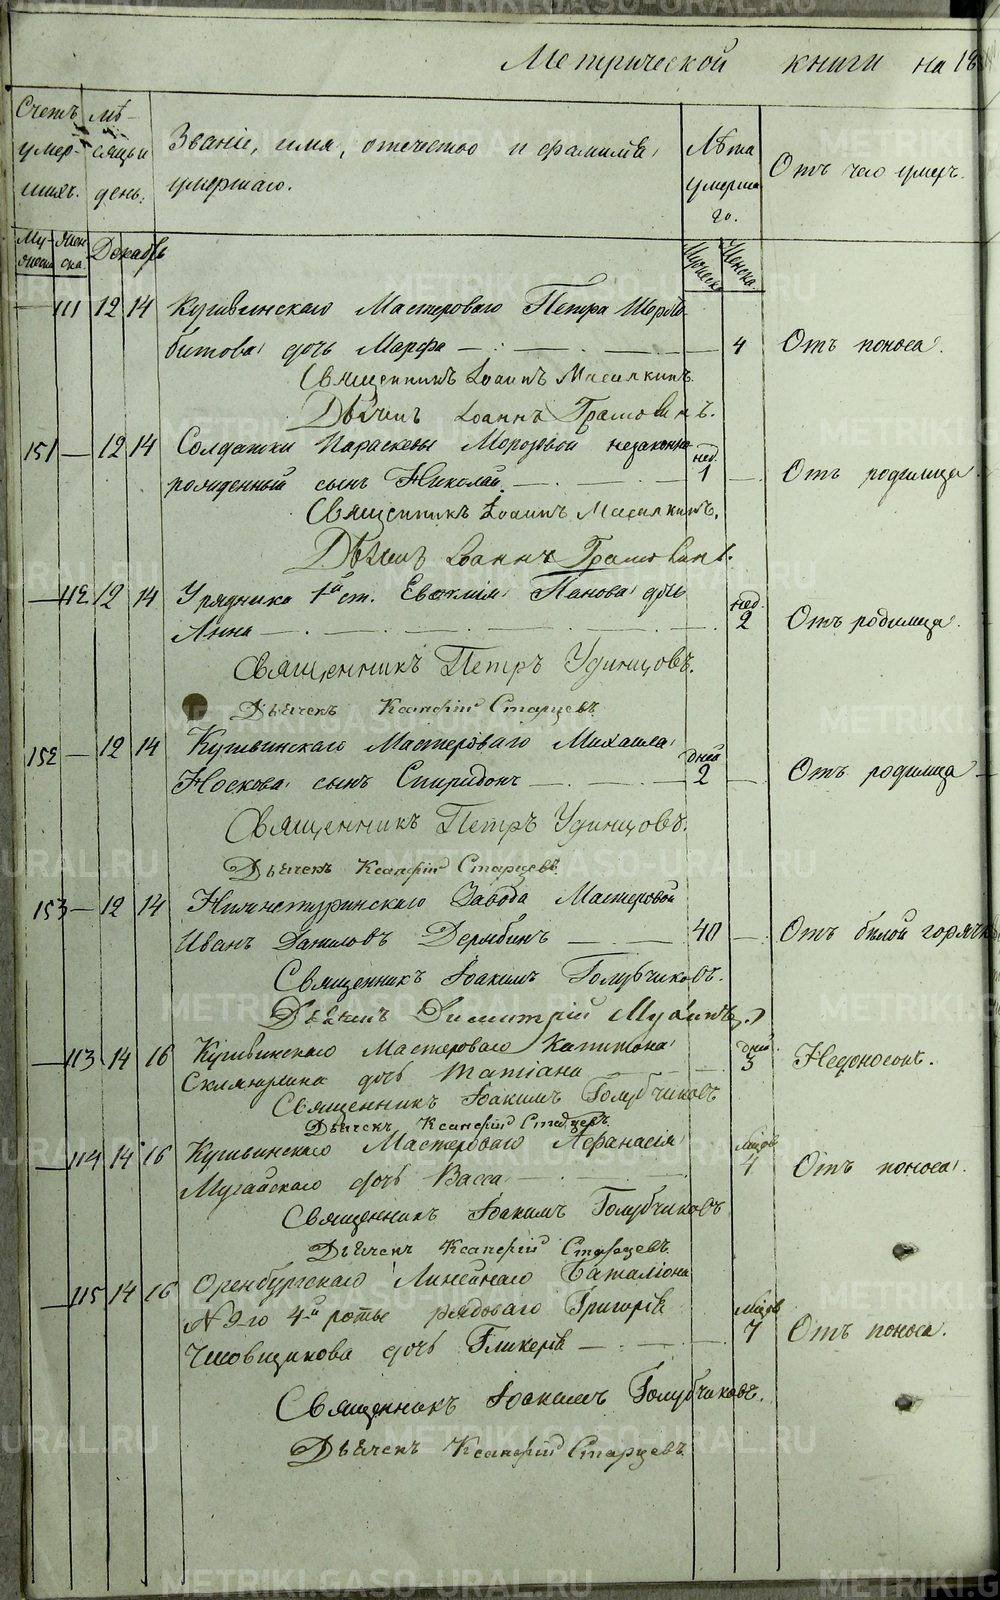 Метрической книги на 18
Счетъ умер- шихъ.
мѣ- сяцъ и день.
Званіе, имя, отечество и фамилія умершаго.
Лѣта умерша го.
Отъ чего умеръ.
Му- жеска
Жен- ска.
Декабрь
Мужеска
Женска
111 12 14 Кушвинскаго Мастероваго Петра
битова дочь Марфа — 4 Отъ поноса.
Священникъ Іоаннъ Масалкинъ.
Дьячекъ Іоаннъ Грамовинъ.
151 — 12 14 Солдатки Параскевы Морозовой незаконно
рожденный сынъ Николай. — нед. 1 — Отъ родимца
Священникъ Іоаннъ Масалкинъ.
Дьячекъ Іоаннъ Грамовинъ.
— 112 12 14 Урядника 1й ст. Панова дочь
Анна — нед. 2 Отъ родимца.
Священникъ Петръ Удинцовъ.
Дьячекъ Ксанфій Старцевъ.
152 — 12 14 Кушвинскаго Мастероваго Михаила
Носкова сынъ Спиридонъ — дней 2 — Отъ родимца
Священникъ Петръ Удинцовъ.
Дьячекъ Ксанфій Старцевъ.
153 — 12 14 Нижнетуринскаго Завода Мастеровой
Иванъ Даниловъ Дерябинъ — 40 — Отъ бѣлой горячк
Священникъ Іоакимъ Голубчиковъ.
Дьячекъ Димитрій Мухинъ.
— 113 14 16 Кушвинскаго Мастероваго Капитона
дочь Татіана — дней 3 Недоносокъ.
Священникъ Іоакимъ Голубчиковъ
Дьячекъ Ксанфій Старцевъ.
— 114 14 16 Кушвинскаго Мастероваго Афанасія
Мугайскаго дочь Васса — мѣсяц 7 Отъ поноса.
Священникъ Іоакимъ Голубчиковъ
Дьячекъ Ксанфій Старцевъ.
— 115 14 16 Оренбургскаго Линейнаго Баталіона
N 9-го 4-й роты рядоваго Григорія
Чисовщикова дочь Гликерія — мѣсяц 7 Отъ поноса.
Священникъ Іоакимъ Голубчиковъ.
Дьячекъ Ксанфій Старцевъ.
METRIKI.GASO-URAL.RU